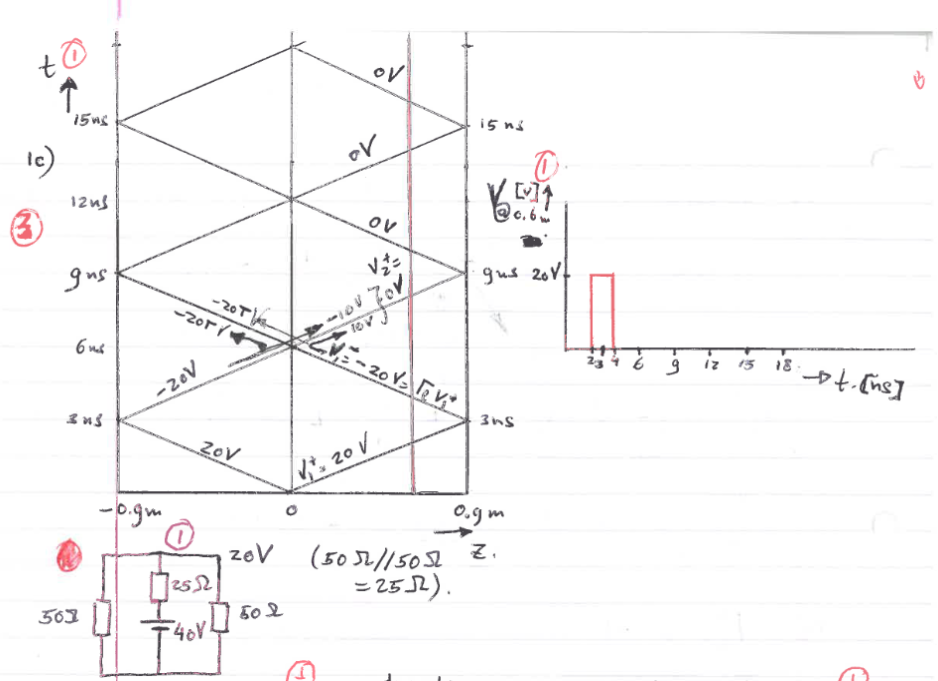 t ①
15ns
1c)
12ns
③
9ns
6ns
3ns
0V
0V
0V
V₂⁺ =
0V
-10V
10V
-20V
V₁⁻ = -20V = Γ V₁⁺
20V
V₁⁺ = 20V
15 ns
9ns
3ns
-0.9m 0 0.9m
z.
①
V [V]
@0.6m
20V
2 3 4 6 9 12 15 18
t. [ns]
①
20V
(50Ω//50Ω
= 25Ω).
25Ω
50Ω
50Ω
40V